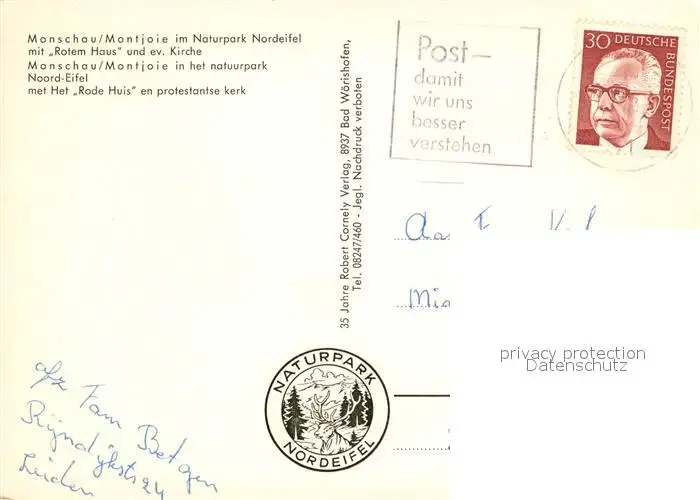 Monschau/Montjoie im Naturpark Nordeifel
mit „Rotem Haus" und ev. Kirche
Monschau/Montjoie in het natuurpark
Noord-Eifel
met Het „Rode Huis" en protestantse kerk
35 Jahre Robert Cornely Verlag, 8937 Bad Wörishofen,
Tel. 08247/460 - Jegl. Nachdruck verboten
Post-
damit
wir uns
besser
verstehen
30 DEUTSCHE
BUNDESPOST
privacy protection
Datenschutz
NATURPARK
NORDEIFEL
afz Fam
Leiden